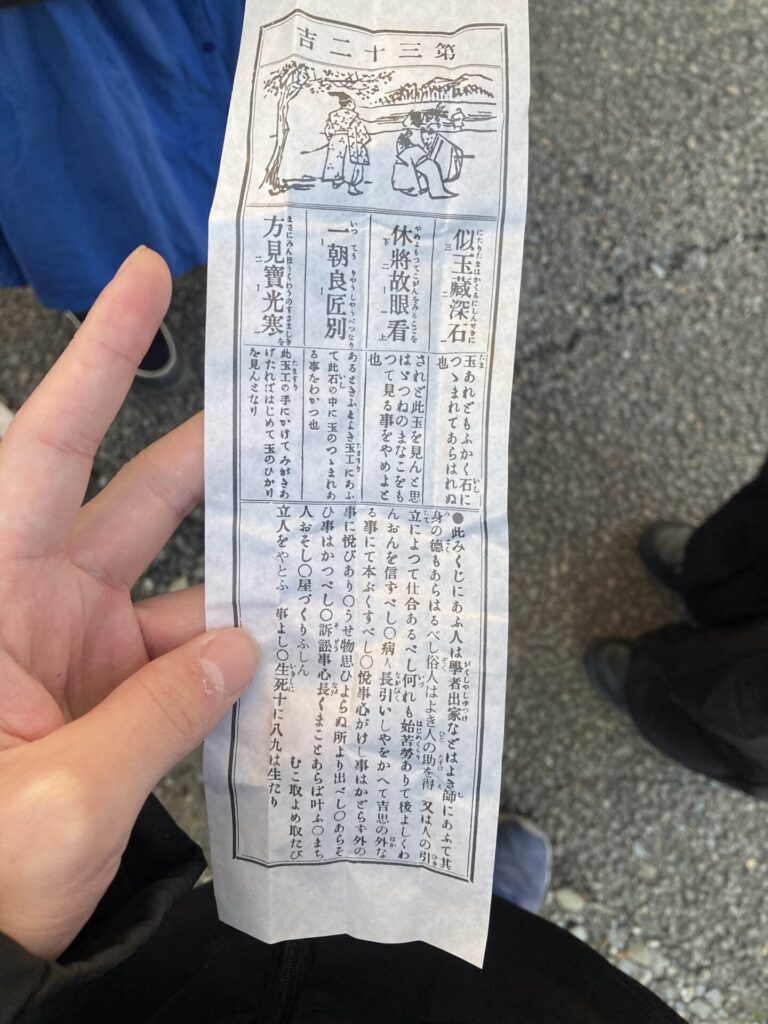 第三十二吉
似玉藏深石
にたりたまはかくるにしんせきに
三 二 一
休將故眼看
やめよもつてこがんをみることを
下 二 一 上
一朝良匠別
いつてうりやうしやうべつなり
方見寶光寒
まさにみんほうくわうのすさましきを
二 一
玉あれどもふかく石に
つゝまれてあらはれぬ
也
されど此玉を見んと思
はゞつねのまなこをも
つて見る事をやめよと
也
あるときふとよき玉工にあふ
て此石の中に玉のつゝまれあ
る事をわかつ也
此玉工の手にかけてみがきあ
げたればはじめて玉のひかり
を見んとなり
●此みくじにあふ人は學者出家などはよき師にあふて其
身の德もあらはるべし俗人はよき人の助を得 又は人の引
立によつて仕合あるべし何れも始苦勞ありて後よしくわ
んおんを信ずべし〇病人長引いしやをかへて吉思の外な
る事にて本ぶくすべし〇悅事心がけし事はかどらず外の
事に悅びあり〇うせ物思ひよらぬ所より出べし〇あらそ
ひ事はかつべし〇訴訟事心長くまことあらば叶ふ〇まち
人おそし〇屋づくりふしん むこ取よめ取たび
立人をやとふ 事よし〇生死十に八九は生たり